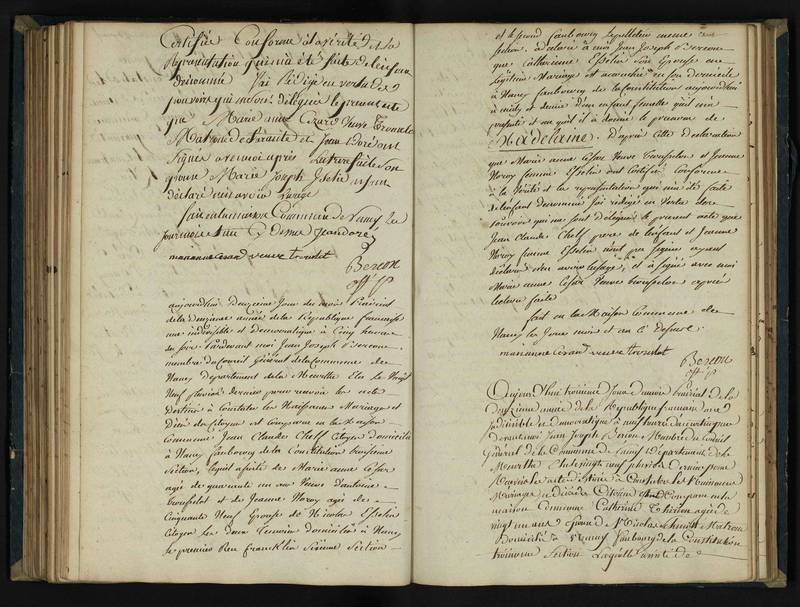 Certifiée Conforme à la vérité et la
Représentation qui m'a été faite de l'enfant
dénommé J'ai Rédigé en vertu des
pouvoirs qui me sont délégués le présent acte
que Marie anne Cezard Veuve Trouvelot
et Jean doré ont
Signés avec moi après Lecture faite Son
épouse Marie Joseph
déclaré n'en avoir L'usage
fait en la maison Commune de Nancy les
Jour mois et an Cy Dessus Jeandoré
marianne cesard veuve trouvelot
Berson
off. p.
aujourdhui Deuxieme Jour du mois Prairial
de la Deuxieme année de la Republique francaise
une indivisible et Democratique à Cinq heures
du soir Pardevant moi Jean Joseph Berson
membre du Conseil Général de la Commune de
Nancy Departement de la Meurthe Elu le Vingt
Neuf pluviose dernier pour recevoir les actes
Destinés à Constater les Naissances Mariages et
Décès des Citoyens est Comparu en la Maison
Commune Jean Claude Chelf Citoyen domicilié
à Nancy fauxbourg de la Constitution troisieme
Section, lequel assisté de Marie anne Cesar
agée de quarante un ans Veuve d'antoine
trouvelot et de Jeanne Noroy agée de
Cinquante Neuf Epouse de Nicolas Esselin
Citoyen les deux Temoins domiciliés à Nancy
le premier Rue francklin Sixieme Section
et le second fauxbourg Lepelletier meme
section. a déclaré à moi Jean Joseph Berson
que Catherine Esselin Son Epouse en
Légitime Mariage est accouchée en son domicile
à Nancy fauxbourg de la Constitution aujourdhui
à midy et demie d'un enfant femelle qu'il m'a
présenté et au quel il a donné le prenom de
Madelaine. D'après cette déclaration
que Marie anne Cesar Veuve Trouvelot et Jeanne
Noroy femme Esselin ont Certifiée Conforme
à la Vérité et la représentation qui m'a été faite
de l'enfant denommé J'ai redigé en Vertu des
pouvoirs qui me sont delegués le present acte que
Jean Claude Chelf pere de l'enfant et Jeanne
Noroy femme Esselin n'ont pas Signé ayant
déclaré n'en avoir l'usage, et a signé avec moi
Marie anne Cesar Veuve trouvelot après
lecture faite
fait en la Maison Commune de
Nancy les Jour mois et an Cy dessus,
marianne cesard veuve trouvelot
Berson
off. p.
Aujourd'hui troisieme Jour du mois prairial de la
Deuxieme année de la Republique francaise une
indivisible et Democratique à neuf heures du matin par
Devant moi Jean Joseph Berson Membre du Conseil
Général de la Commune de Nancy Département de la
Meurthe Elu le vingt neuf pluviose Dernier pour
Recevoir les actes destinés à Constater les Naissances
Mariages et décès des Citoyens est Comparu en la
maison Commune Catherine agée de
vingt un ans Epouse de Nicolas
Domicilié à Nancy fauxbourg de la Constitution
troisieme Section Laquelle assistée de